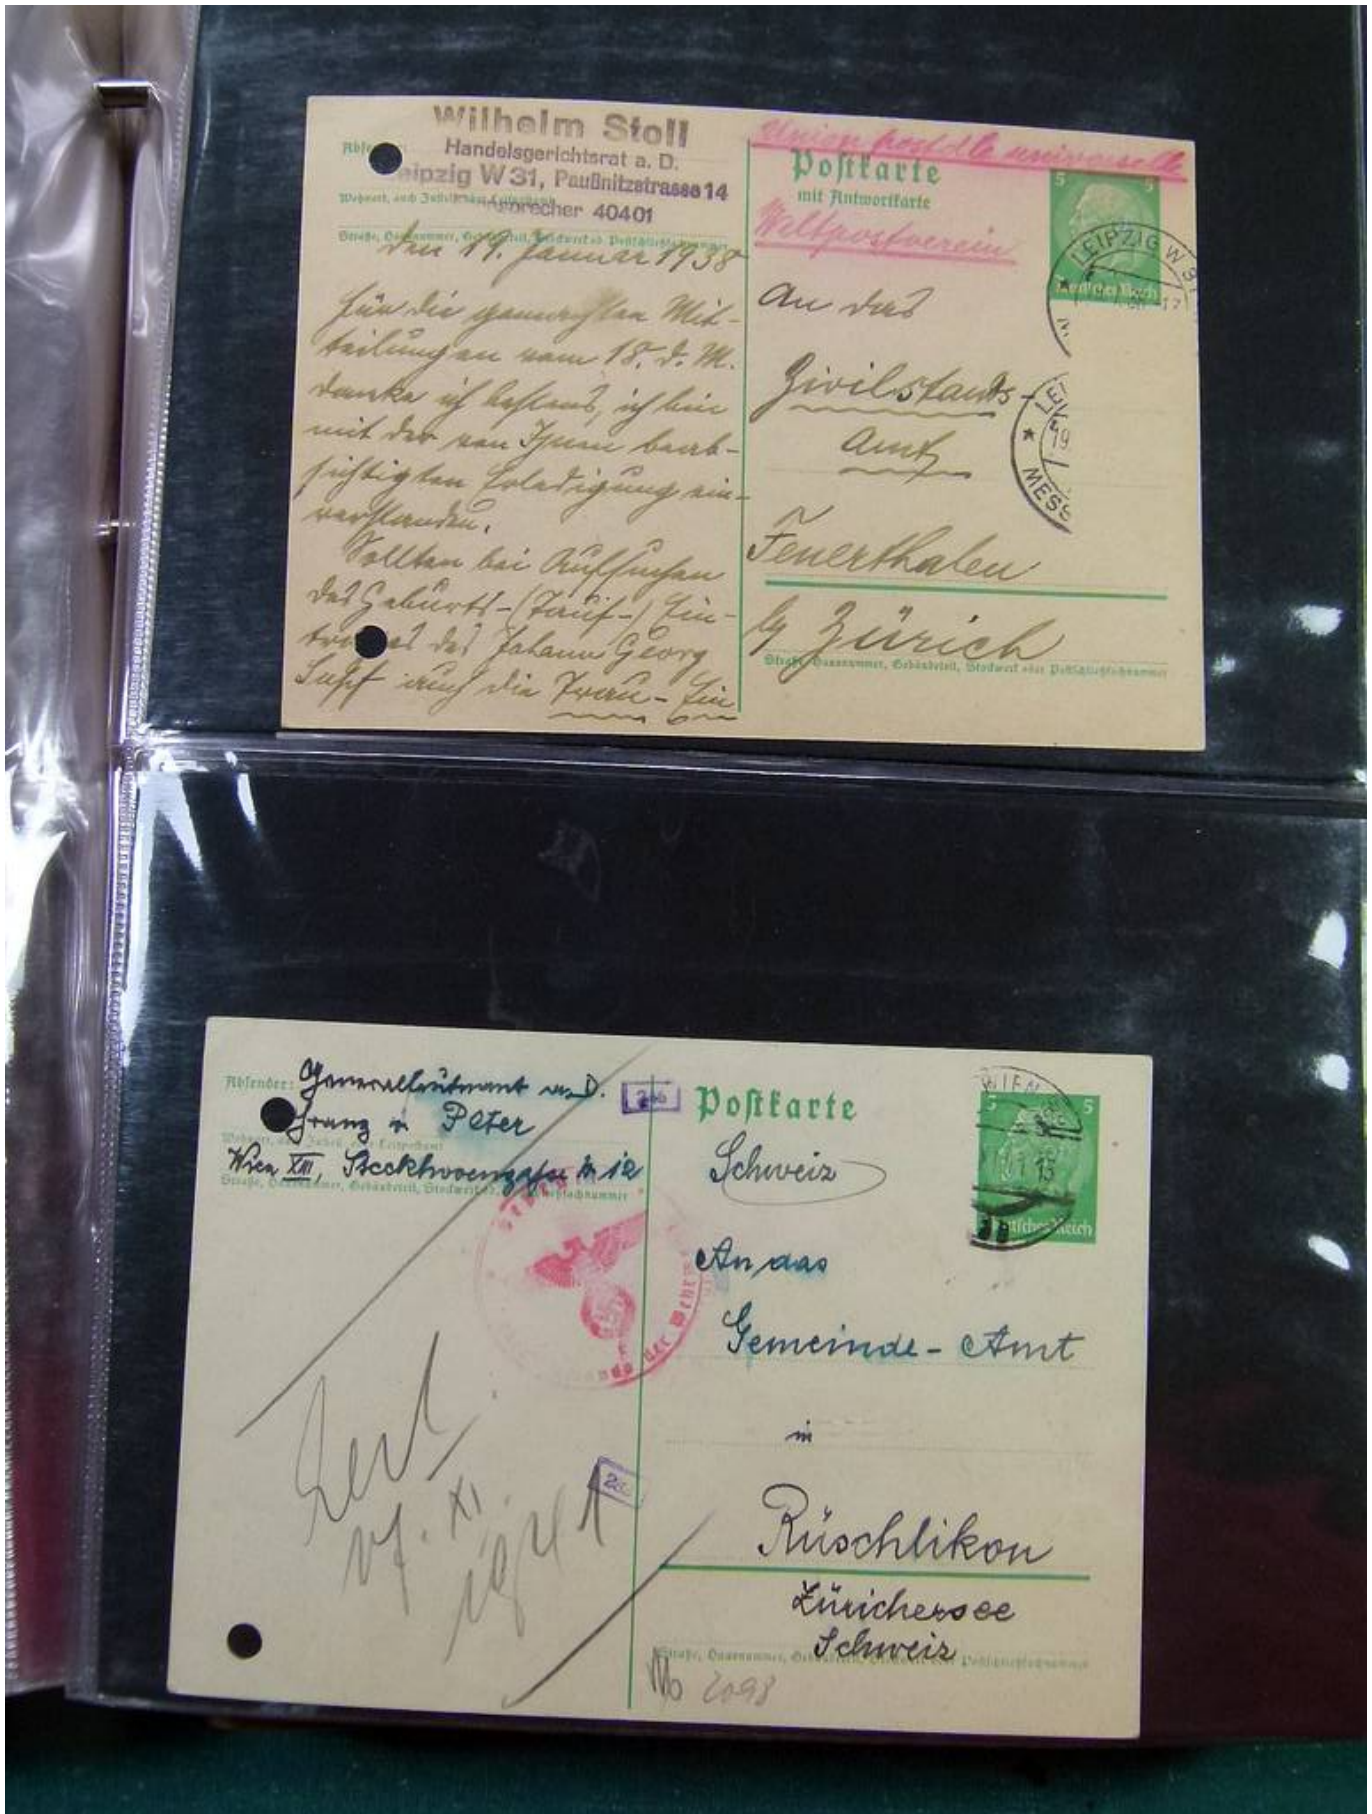 Wilhelm Stoll
Handelsgerichtsrat a. D.
eipzig W 31, Paußnitzstrasse 14
precher 40401
Wohnort, auch Zustell- oder Leitpostamt
Straße, Hausnummer, Gebäudeteil, Stockwerk od. Postschließfachnummer
den 19. Januar 1938
Für die gemachten Mit-
teilungen vom 18. d. M.
danke ich bestens, ich bin
mit der von Ihnen beab-
sichtigten Erledigung ein-
verstanden.
Sollten bei Aufsuchen
des Geburts-(Tauf-) Ein-
des Johann Georg
auch die Trau-Ein
Union postale universelle
Postkarte
mit Antwortkarte
Weltpostverein
5 5
Deutsches Reich
LEIPZIG W 31
An das
Zivilstands-
Amt
LEI
19
MESS
Feuerthalen
b/ Zürich
Straße, Hausnummer, Gebäudeteil, Stockwerk oder Postschließfachnummer
Absender: Generalleutnant a. D.
Franz Peter
Wien XIII, 12
Straße, Hausnummer, Gebäudeteil, Stockwerk od. Postschließfachnummer
der Wehrm
XI.
1941
Postkarte
5 5
WIEN
Deutsches Reich
Schweiz
An das
Gemeinde-Amt
in
Rüschlikon
Zürichersee
Schweiz
Straße, Hausnummer, Gebäudeteil, Stockwerk oder Postschließfachnummer
2098